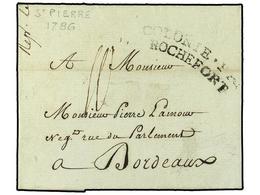 St PIERRE
1786
COLONIE
ROCHEFORT
A Monsieur
Monsieur Pierre Lamour
Negt rue du Parlement
a Bordeaux